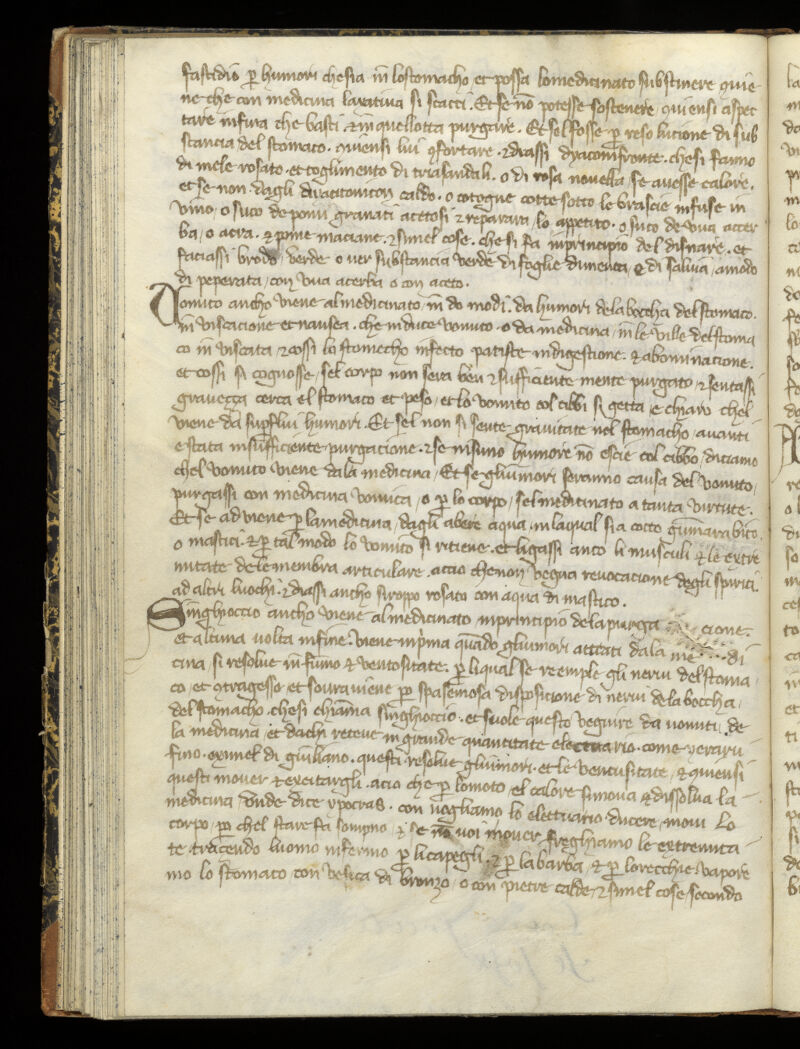 fastidio ꝑ humori che sia in lo stomacho et possa lo medicinato substinere quie
ne che con medicina laxativa si scacci. Et se nō potesse sostenere quiensi aspec
tare infura che basti ⁊ in quellotta purgare. Et sel fosse ꝑ resolucione di sub
stancia del stomaco. quiensi lui ꝯfortare. ⁊ diassi dyaconsironte. che si fanno
di mele rosato. et toglimento di triasandali. o di rosa novella / se avesse calore.
et se non. dagli diacitoniton caldo. o cotogne cotte sotto le brascie infuse in
vino / o suco de pomi granati acetosi ⁊ reparara / lo appetito. o suco de vua acer
ba / o acra. ⁊ prune maciane. ⁊ simel cose. che si fa inprincipio del disnare. et
faciassi brodo verde o ver substancia verde di foglie di menta / ⁊ di salvia / a modo
di peperata / con vva acerba o con aceto.
Vomito ancho viene al medicinato in do modi. da humori de la boccha del stomaco.
in viscacione et nausea. che induce vomito. o da medicina / in le ville del stoma
co in viscata / ⁊ cossi lo stomecho infecto patiste indigestione. ⁊ abominacione.
et cossi si cognosse / sel corpo non sera ben ⁊ sufficiente mente purgato / ⁊ sentassi
graveçça cerca el stomaco et peso / et lo vomito col cibbi si getta / e chiaro chel
viene da supflui humori. Et sel non si sente gravitate nel stomacho / avanti
e stata insufficiente purgacione. ⁊ se nisuno humore nō escie col cibbo / diciamo
chel vomito viene dala medicina / Et se gliumori seranno causa del vomito /
purgassi con medicina vomica / o ꝑ lo corpo / sel medicinato a tanta virtute.
Et se ad viene ꝑ la medicina / dagli abere aqua / in laqual sia cocto gumarabico,
o mastici. ⁊ ꝑ tal modo lo vomito si ritiene. et ligassi anco li musculi ⁊ le extre
mitate dele membra articulare. acio che non vegna revocacione degli spiriti.
ad altri luochi. ⁊ diassi ancho siroppo rosato con aqua di mastico.
Singhioccio ancho viene al medicinato inprincipio dela purga cione.
et alcuna volta in fine. viene inprima quādo gliumori attitati dala me di
cina si resolve in fumo ⁊ ventositate. ꝑ li qual se reemple gli nervi del stoma
co / et ꝯtragesse / et souraviene ꝑ spasemosa disposicione di nervi dela boccha /
del stomacho. che si chiama singhioccio. et suole questo veguire da vomiti / de
la medicina / et dachi reteve in grande quantitate electuario. come yeraru
fino. exmiel di giuliano. questi resolve gliumori. et le ventusitate / ⁊ quiensi
questi mover ⁊ excitargli. acio che ꝑ lo moto / el calore si mova ⁊ dissolva la
medicina vnde dice ypocras. con vogliamo lo electuario ducere / movi lo
corpo / ꝑ chel stare fa sompno / ⁊ se nō voi mover / freghiamo le extremita
te tragendo luomo infermo ꝑ li capegli. ⁊ ꝑ la barba / ⁊ ꝑ lorecchie. vapore
mo lo stomaco / con vesica di bronzo / o con pietre calde ⁊ simel cose / secondo